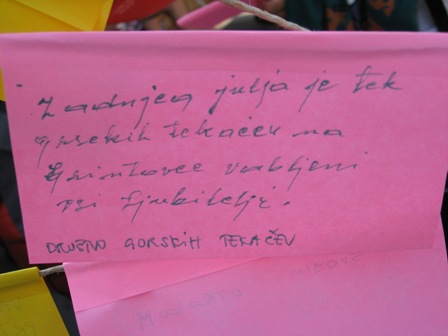 Zadnjega julja je tek
gorskih tekačev na
Grintovec vabljeni
vsi ljubitelji.
DRUŠTVO GORSKIH TEKAČEV